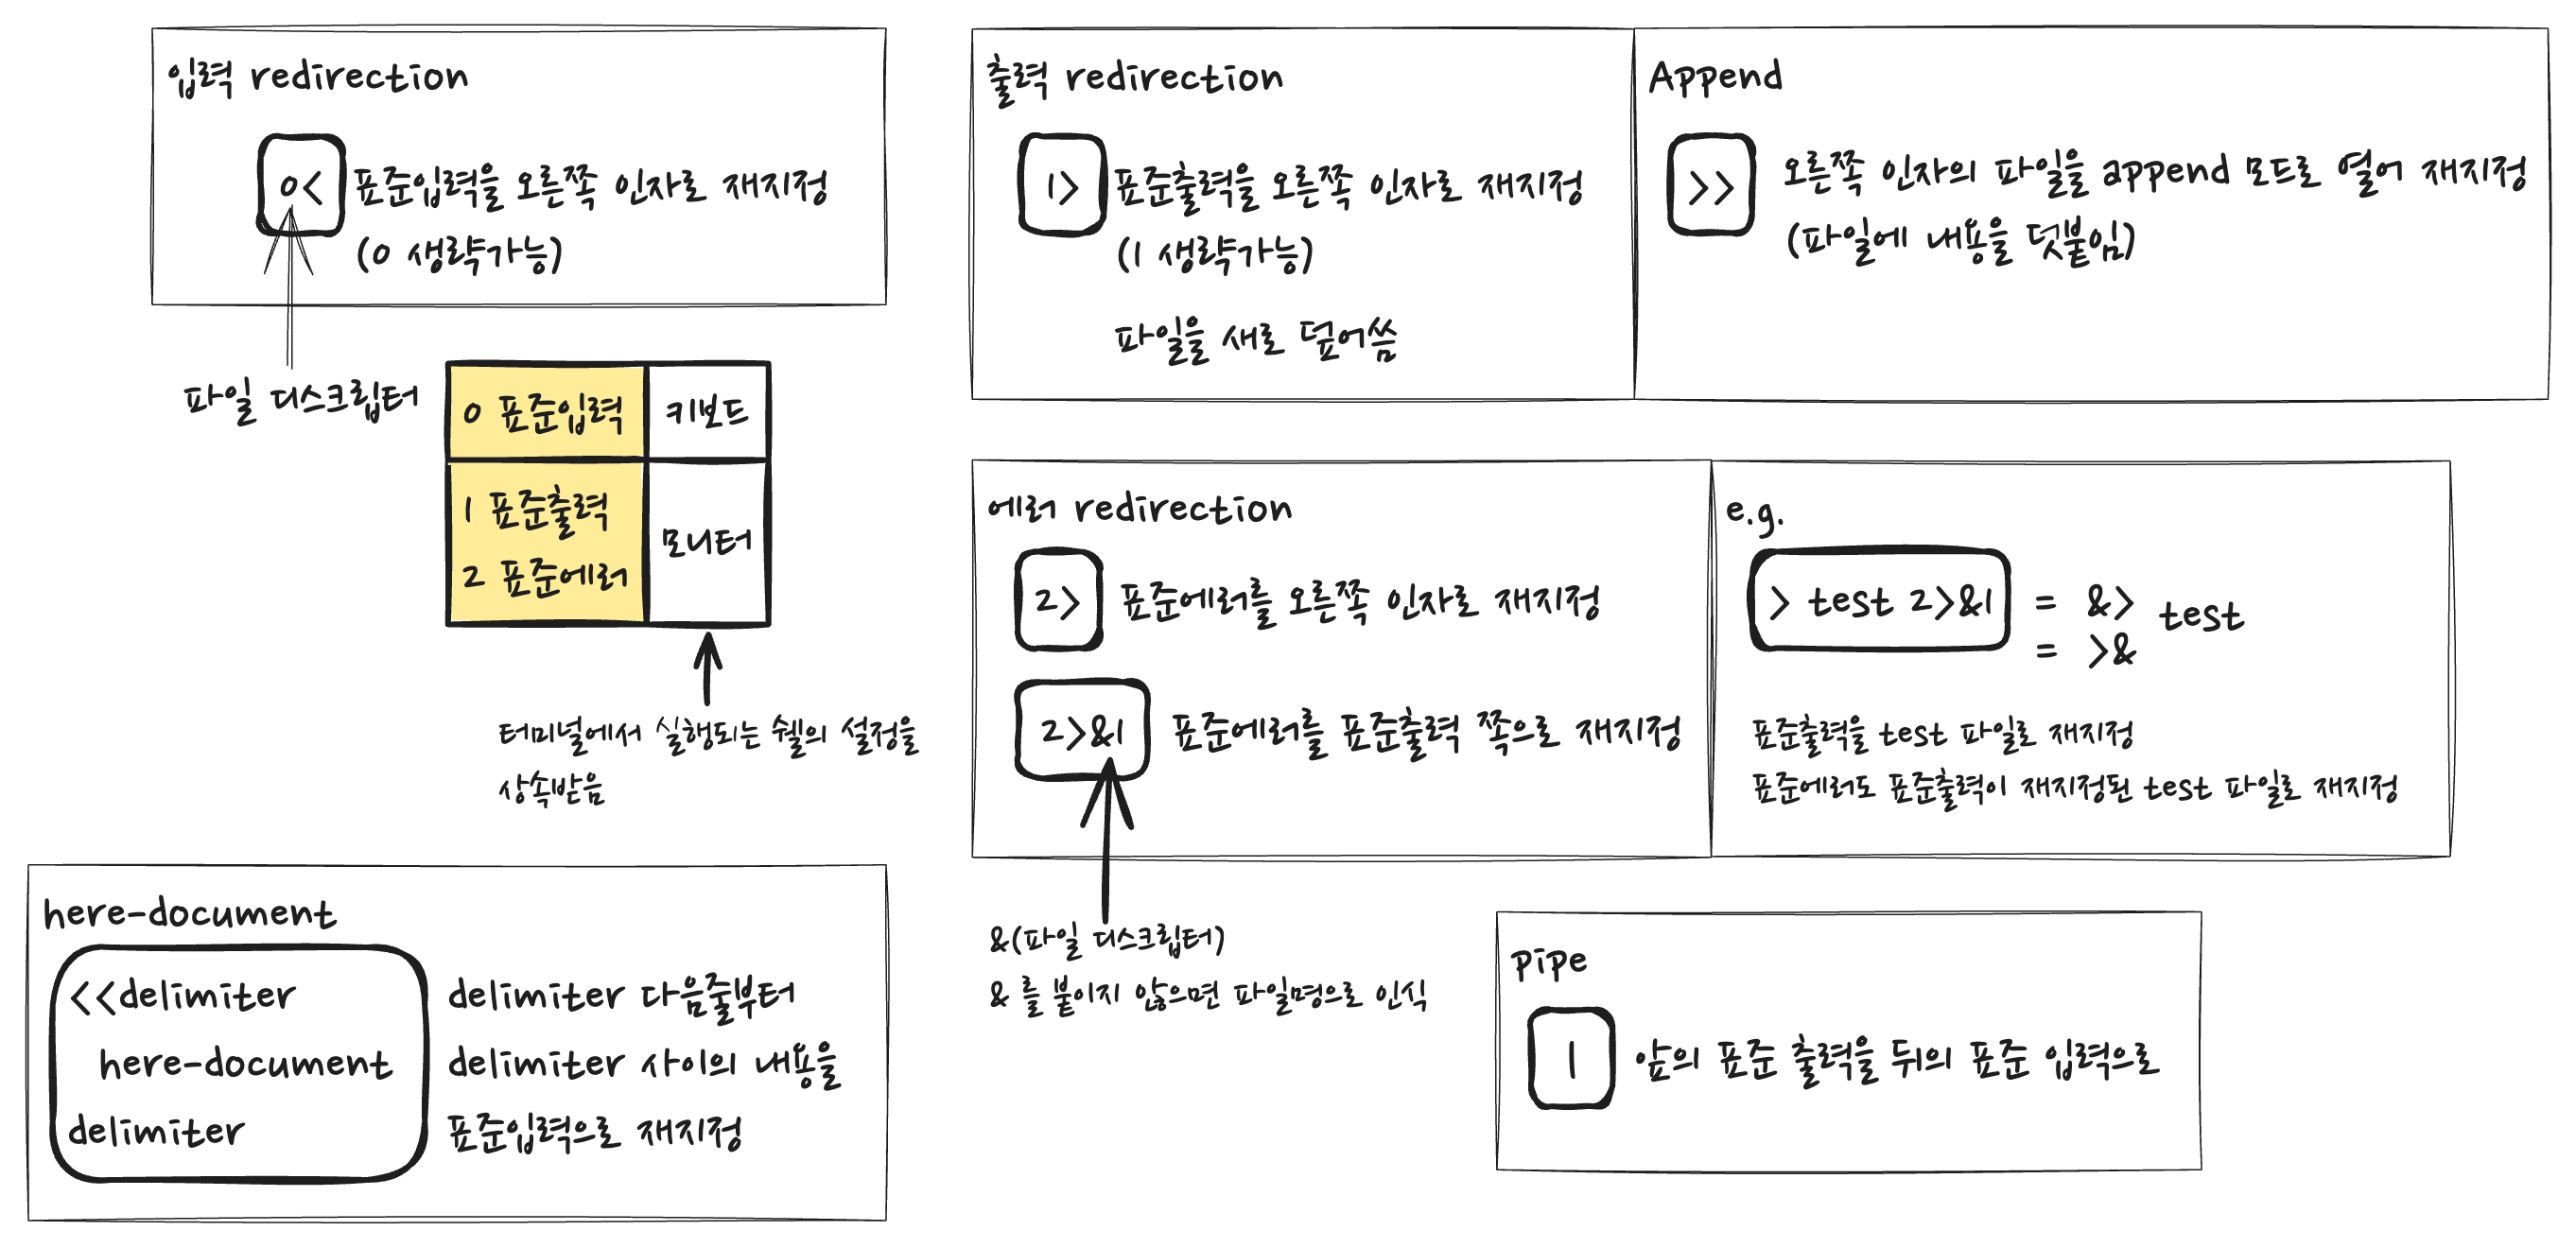 입력 redirection
0< 표준입력을 오른쪽 인자로 재지정
(0 생략가능)
파일 디스크립터
0 표준입력 키보드
1 표준출력
2 표준에러
모니터
터미널에서 실행되는 쉘의 설정을
상속받음
here-document
<<delimiter
here-document
delimiter
delimiter 다음줄부터
delimiter 사이의 내용을
표준입력으로 재지정
출력 redirection
1> 표준출력을 오른쪽 인자로 재지정
(1 생략가능)
파일을 새로 덮어씀
Append
>> 오른쪽 인자의 파일을 append 모드로 열어 재지정
(파일에 내용을 덧붙임)
에러 redirection
2> 표준에러를 오른쪽 인자로 재지정
2>&1 표준에러를 표준출력 쪽으로 재지정
&(파일 디스크립터)
& 를 붙이지 않으면 파일명으로 인식
e.g.
> test 2>&1 = &> test
= >&
표준출력을 test 파일로 재지정
표준에러도 표준출력이 재지정된 test 파일로 재지정
pipe
| 앞의 표준 출력을 뒤의 표준 입력으로